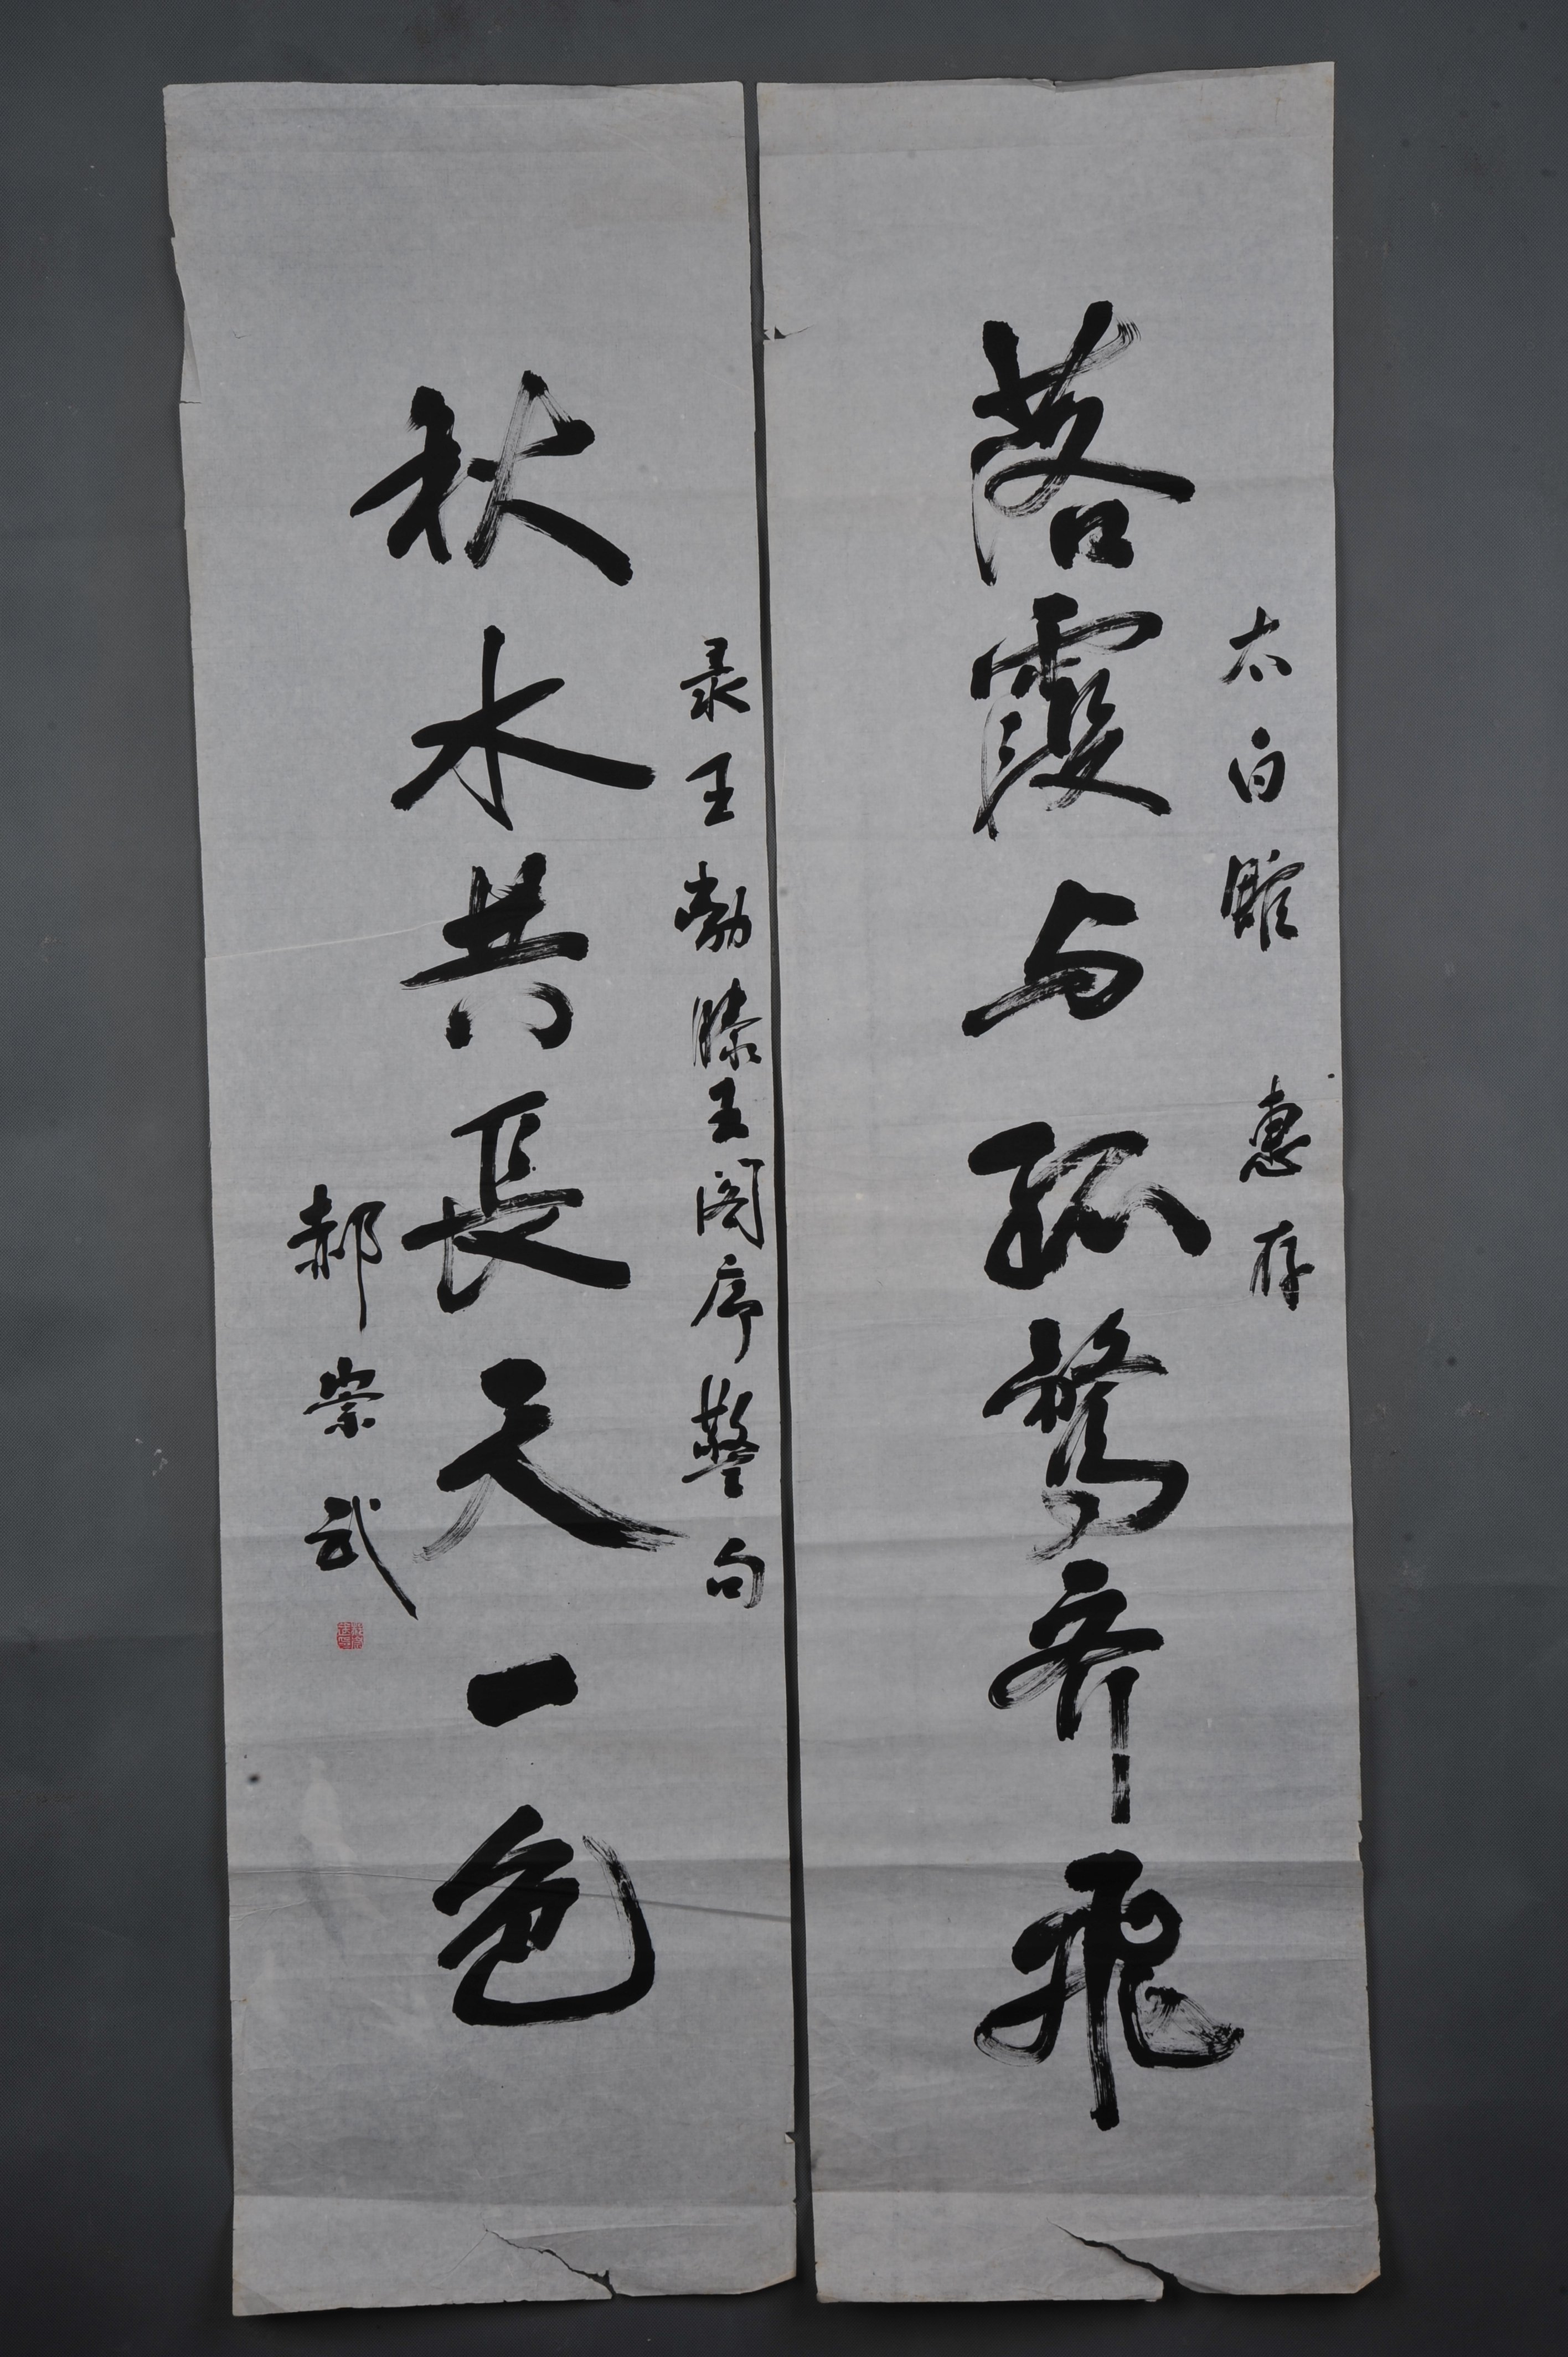 太白 惠存
落霞与孤鹜齐飞
录王勃滕王阁序警句
秋水共長天一色
郝崇武